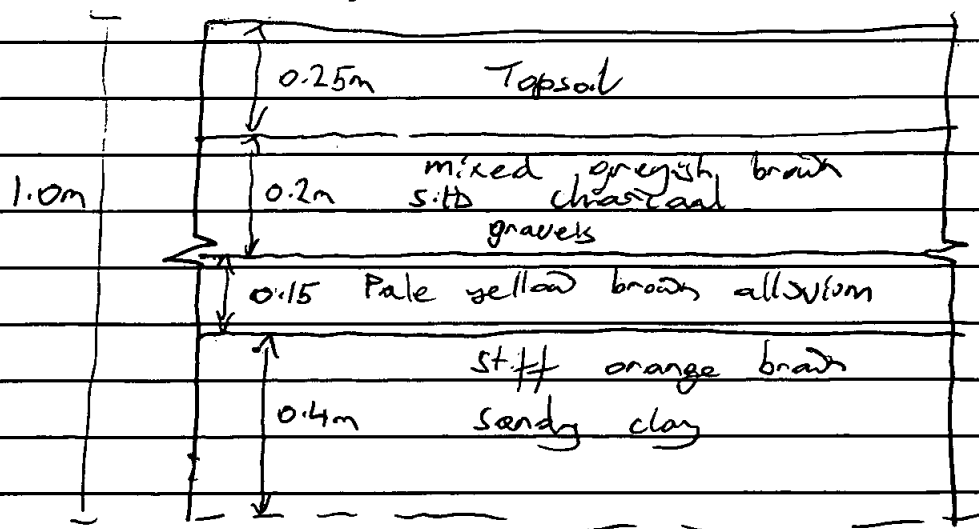 0.25m Topsoil
mixed greyish brown
1.0m 0.2m silts charcoal
gravels
0.15 Pale yellow brown alluvium
stiff orange brown
0.4m sandy clay